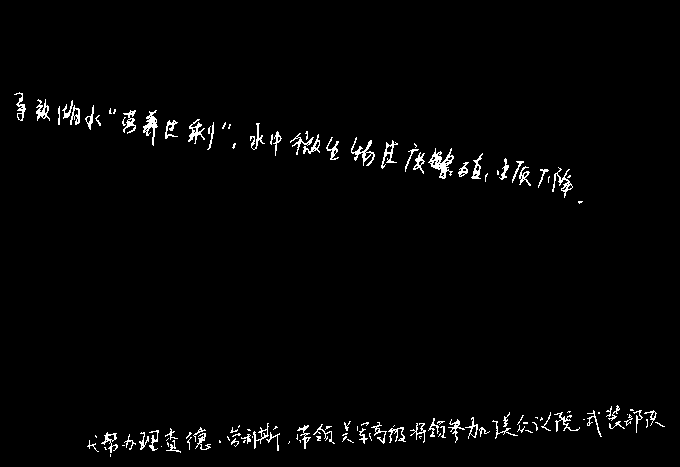 导致湖水“营养过剩”，水中微生物过度繁殖，水质下降．
长帮办理查德·劳利斯，带领美军高级将领参加该众议院武装部队